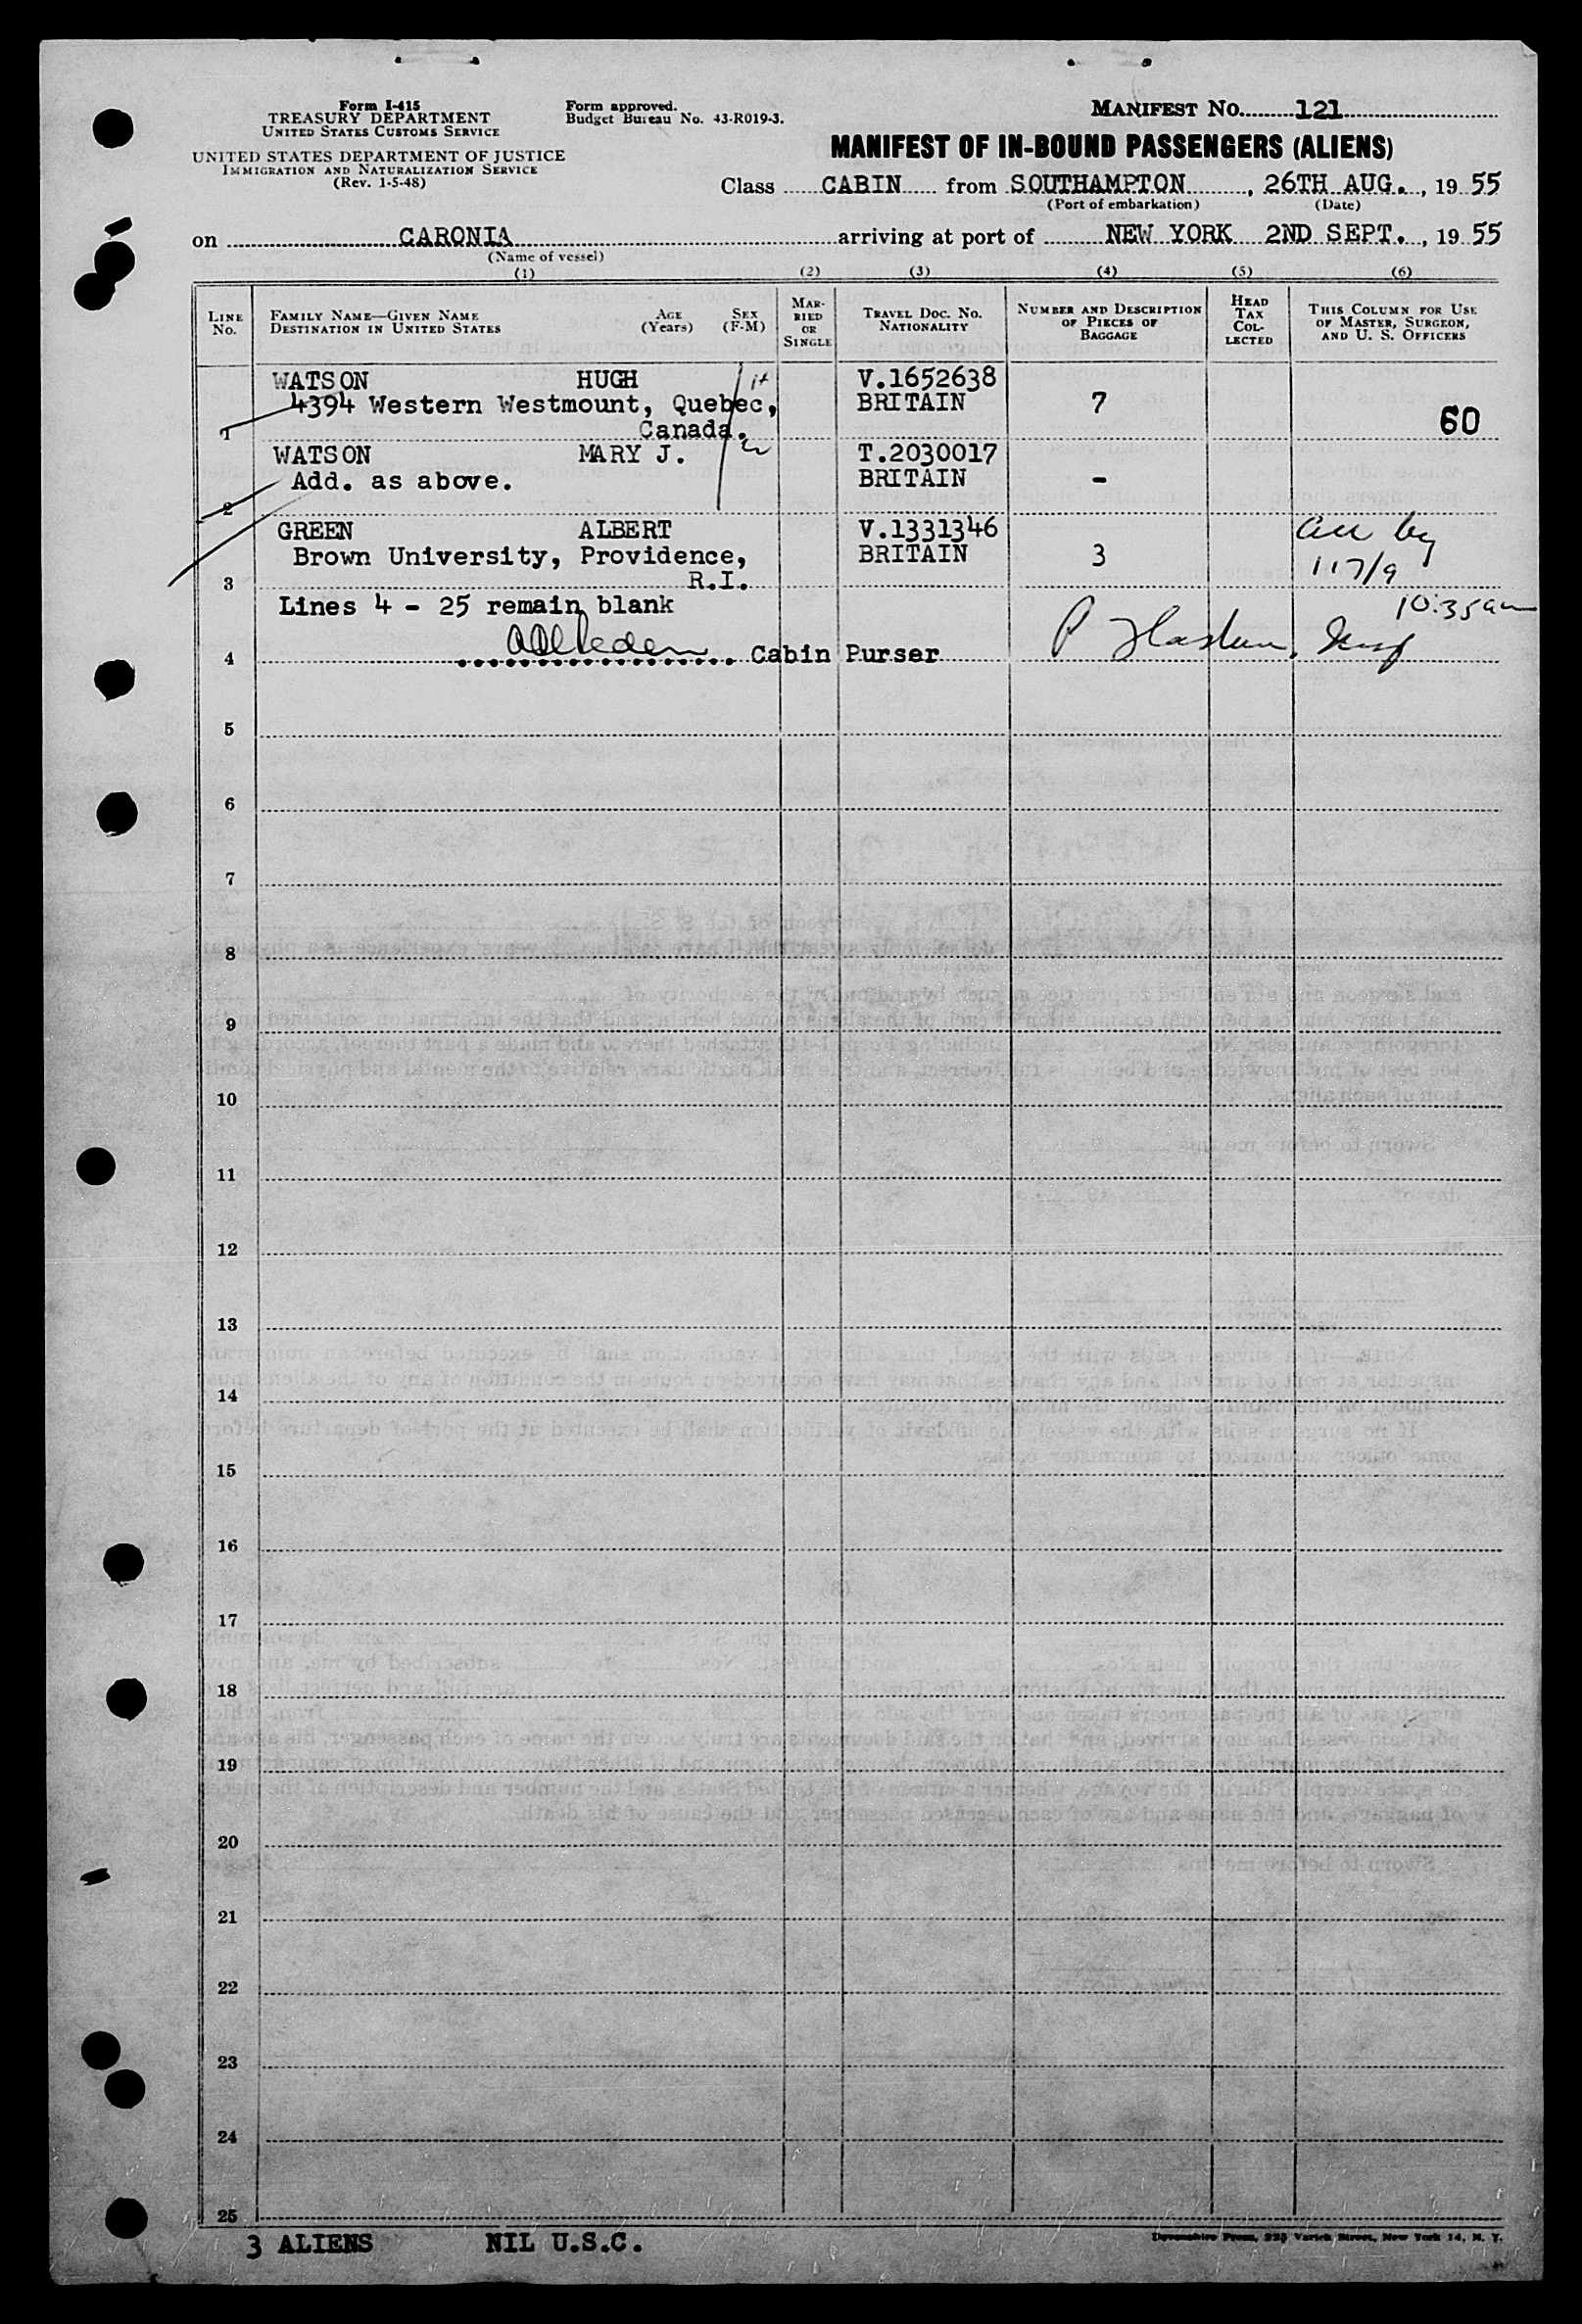 Form I-415
TREASURY DEPARTMENT
UNITED STATES CUSTOMS SERVICE
UNITED STATES DEPARTMENT OF JUSTICE
IMMIGRATION AND NATURALIZATION SERVICE
(Rev. 1-5-48)
Form approved.
Budget Bureau No. 43-R019-3.
MANIFEST No. 121
MANIFEST OF IN-BOUND PASSENGERS (ALIENS)
Class CABIN from SOUTHAMPTON, 26TH AUG., 19 55
(Port of embarkation) (Date)
on CARONIA arriving at port of NEW YORK 2ND SEPT., 19 55
(Name of vessel)
(1) (2) (3) (4) (5) (6)
LINE No.
FAMILY NAME—GIVEN NAME
DESTINATION IN UNITED STATES
AGE (Years)
SEX (F-M)
MARRIED OR SINGLE
TRAVEL DOC. NO. NATIONALITY
NUMBER AND DESCRIPTION OF PIECES OF BAGGAGE
HEAD TAX COLLECTED
THIS COLUMN FOR USE OF MASTER, SURGEON, AND U. S. OFFICERS
WATSON HUGH V.1652638
4394 Western Westmount, Quebec, BRITAIN 7
1 Canada. 60
WATSON MARY J. T.2030017
Add. as above. BRITAIN -
2
GREEN ALBERT V.1331346
Brown University, Providence, BRITAIN 3
3 R.I.
Lines 4 - 25 remain blank 10:35am
4 Cabin Purser
5
6
7
8
9
10
11
12
13
14
15
16
17
18
19
20
21
22
23
24
25
3 ALIENS NIL U.S.C.
Devonshire Press, 225 Varick Street, New York 14, N. Y.